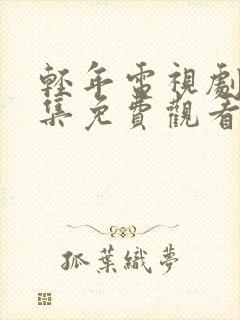 輕年電視劇
集免費觀看
孤葉織夢